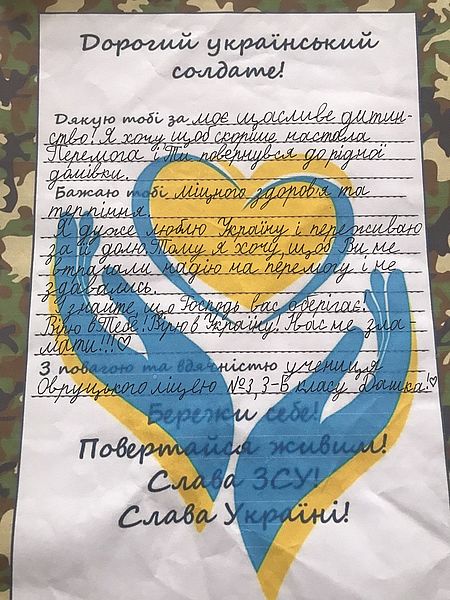 Дорогий український
солдате!
Дякую тобі за моє щасливе дитин-
ство! Я хочу щоб скоріше настала
Перемога і Ти повернувся до рідної
домівки.
Бажаю тобі міцного здоров'я та
терпіння.
Я дуже люблю Україну і переживаю
за її долю. Тому я хочу, щоб Ви не
втрачали надію на перемогу і не
здавались.
І знайте, що Господь вас оберігає.
Вірю в Тебе! Вірю в Україну! Нас не зла-
мати!!!♡
З повагою та вдячністю учениця
Овруцького ліцею №3, 3-Б класу Дашка!♡
Бережи себе!
Повертайся живим!
Слава ЗСУ!
Слава Україні!